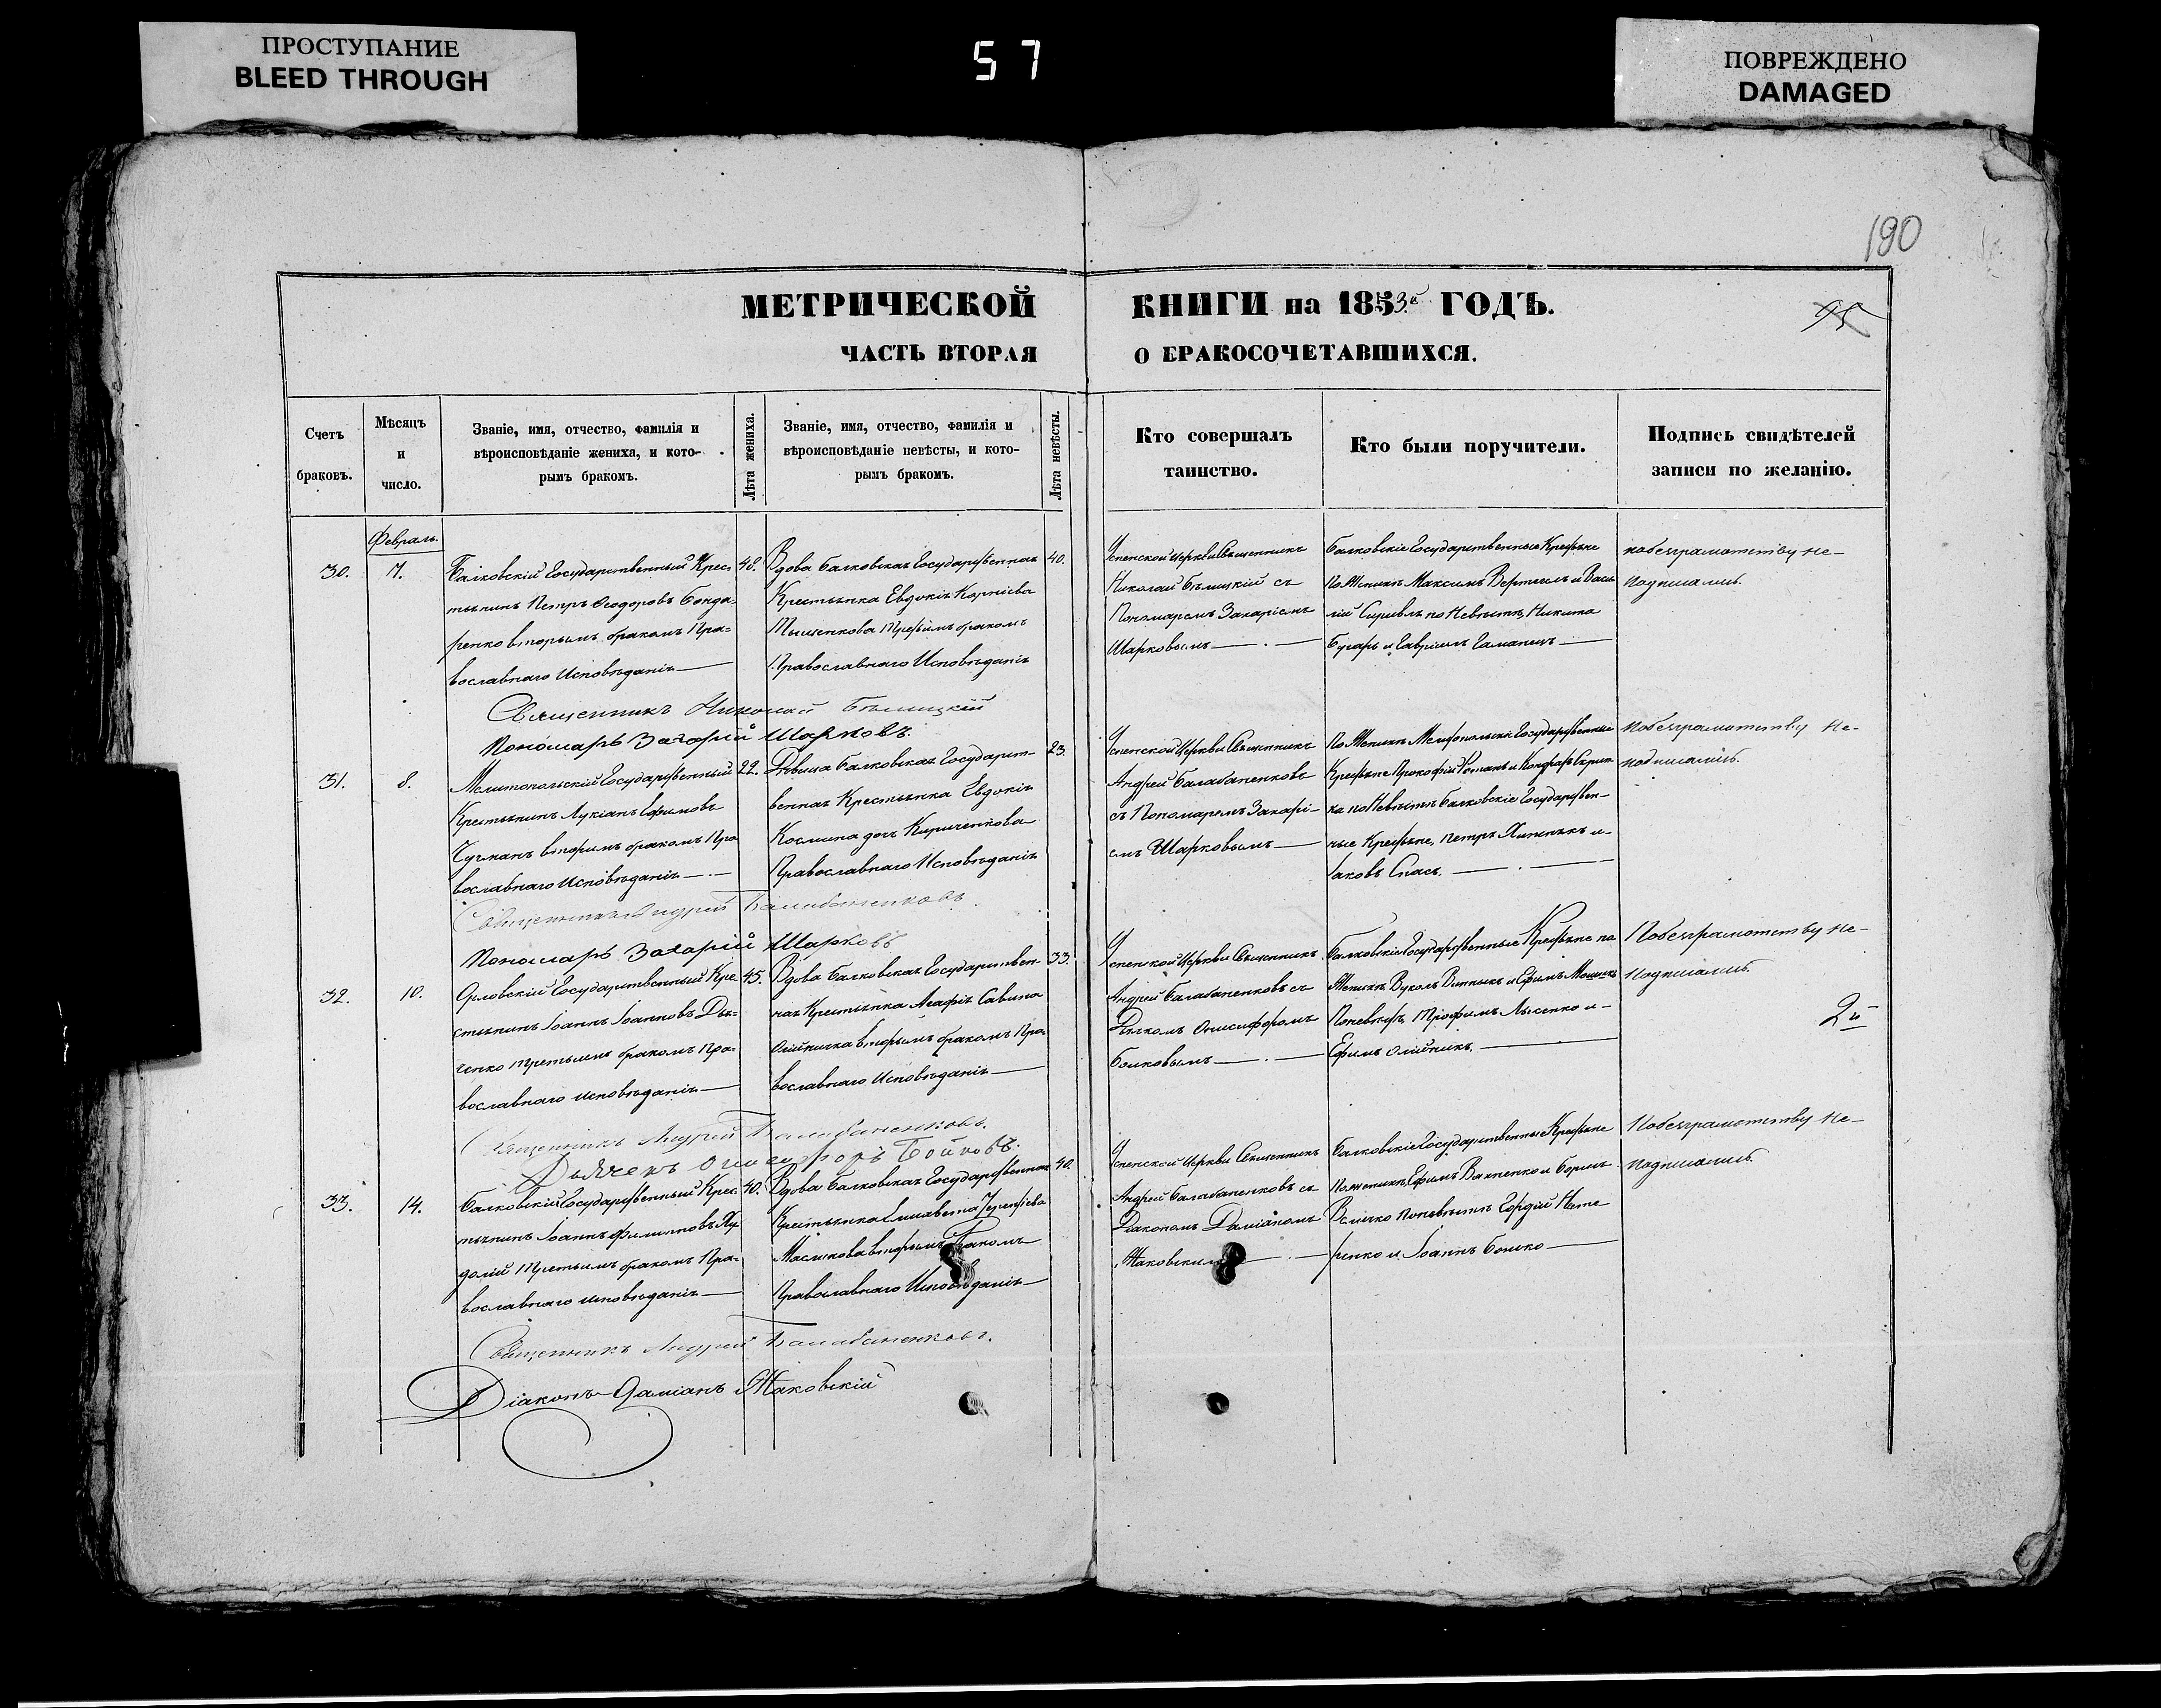 ПРОСТУПАНИЕ
BLEED THROUGH
57
ПОВРЕЖДЕНО
DAMAGED
190
МЕТРИЧЕСКОЙ КНИГИ на 1853й ГОДЪ.
95
ЧАСТЬ ВТОРАЯ О БРАКОСОЧЕТАВШИХСЯ.
Счетъ
браковъ.
Мѣсяцъ
и
число.
Званіе, имя, отчество, фамилія и
вѣроисповѣданіе жениха, и кото-
рымъ бракомъ.
Лѣта жениха.
Званіе, имя, отчество, фамилія и
вѣроисповѣданіе невѣсты, и кото-
рымъ бракомъ.
Лѣта невѣсты.
Кто совершалъ
таинство.
Кто были поручители.
Подпись свидѣтелей
записи по желанію.
Февраль.
30.
7.
Балковскій Государственный Крес-
тьянинъ Петръ Ѳеодоровъ Бонда-
ренко вторымъ бракомъ Пра-
вославнаго Исповѣданія
48.
Вдова Балковская Государственная
Крестьянка Евдокія Корніева
Тыщенкова Третьимъ бракомъ
Православнаго Исповѣданія
40.
Успенской Церкви Священникъ
Николай Бѣлицкій съ
Пономаремъ Захаріемъ
Шарковымъ
Балковскіе Государственные Крестьяне
По Женихѣ Максимъ и Васи
лій по Невѣстѣ, Никита
Бугаръ и Гавріилъ Гаманецъ
по безграмотству не-
подписались.
Священникъ Николай Бѣлицкій
Пономарь Захарій Шарковъ.
31.
8.
Мелитопольскій Государственный
Крестьянинъ Лукіанъ Ефимовъ
вторымъ бракомъ Пра
вославнаго Исповѣданія
22.
Дѣвица Балковская Государст-
венная Крестьянка Евдокія
Космина дочь Кириченкова
Православнаго Исповѣданія
23
Успенской Церкви Священникъ
Андрей Балабаненковъ
съ Пономаремъ Захарі-
емъ Шарковымъ
По Женихѣ Мелитопольскіе Государственные
Крестьяне Прокофій и
ка по Невѣстѣ Балковскіе Государствен-
ные Крестьяне, Петръ и
Іаковъ Спасъ.
по безграмотству не-
подписались.
Священникъ Андрей Балабаненковъ.
Пономарь Захарій Шарковъ
32.
10.
Орловскій Государственный Кре
стьянинъ Іоаннъ Іоанновъ Дья-
ченко третьимъ бракомъ Пра-
вославнаго исповѣданія
45.
Вдова Балковская Государствен-
ная Крестьянка Агафія Савина
Олійничка вторымъ бракомъ Пра
вославнаго Исповѣданія
33.
Успенской Церкви Священникъ
Андрей Балабаненковъ съ
Дьякомъ Онисифоромъ
Бойковымъ
Балковскіе Государственные Крестьяне по
Женихѣ Вуколъ и Ефимъ
По невѣстѣ, Трофимъ Лысенко и
Ефимъ Олійникъ.
По безграмотству не-
подписались.
2й
Священникъ Андрей Балабаненковъ.
Дьячекъ Онисифоръ Бойковъ.
33.
14.
Балковскій Государственный Крес
тьянинъ Іоаннъ Филипповъ Ху
долій третьимъ бракомъ Пра-
вославнаго исповѣданія
40.
Вдова Балковская Государственная
Крестьянка Елисавета Терентіева
Масликова вторымъ Бракомъ
Православнаго Исповѣданія
40.
Успенской Церкви Священникъ
Андрей Балабаненковъ съ
Діакономъ Даміаномъ
Жаковскимъ
Балковскіе Государственные Крестьяне
По женихѣ, Ефимъ и Борисъ
Величко По невѣстѣ Гордій Нете
ренко и Іоаннъ Бошко
По безграмотству не-
подписались.
Священникъ Андрей Балабаненковъ.
Діаконъ Даміанъ Жаковскій